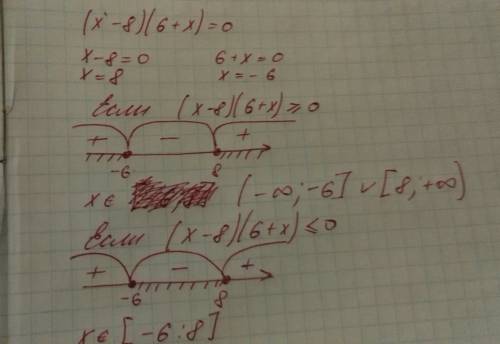 (x-8)(6+x)=0
x-8=0 6+x=0
x=8 x=-6
Если (x-8)(6+x)≥0
+ - +
-6 8
x∈ (-∞;-6] ∨ [8;+∞)
Если (x-8)(6+x)≤0
+ - +
-6 8
x∈[-6;8]